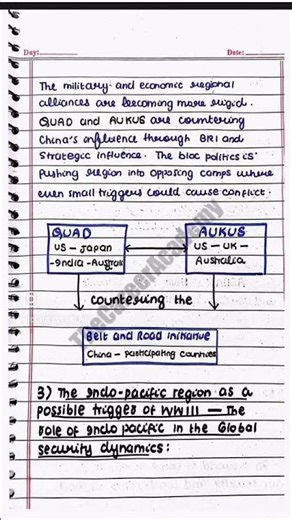 Day:
Date:
The military and economic regional
alliances are becoming more rigid.
QUAD and AUKUS are countering
China's influence through BRI and
Strategic influence. The bloc politics is
Pushing region into opposing camps where
even small triggers could cause conflict.
QUAD
US - Japan
-India - Austra
AUKUS
US - UK -
Australia
countering the
Belt and Road Initiative
China - Participating Countries
TheCareerAcademy
3) The Indo-pacific region as a
possible trigger of WWIII — The
role of Indo pacific in the Global
security dynamics: